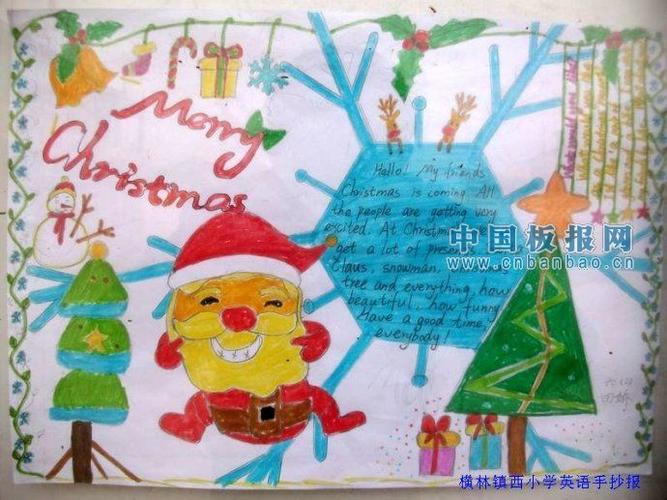 Merry
Christmas
Hello! My friends
Christmas is coming. All
the people are getting very
excited. At Christmas
get a lot of
Claus, snowman,
tree and everything, how
beautiful, how funny
Have a good time,
everybody!
What would you like?
中国板报网
www.cnbanbao.cn
横林镇西小学英语手抄报